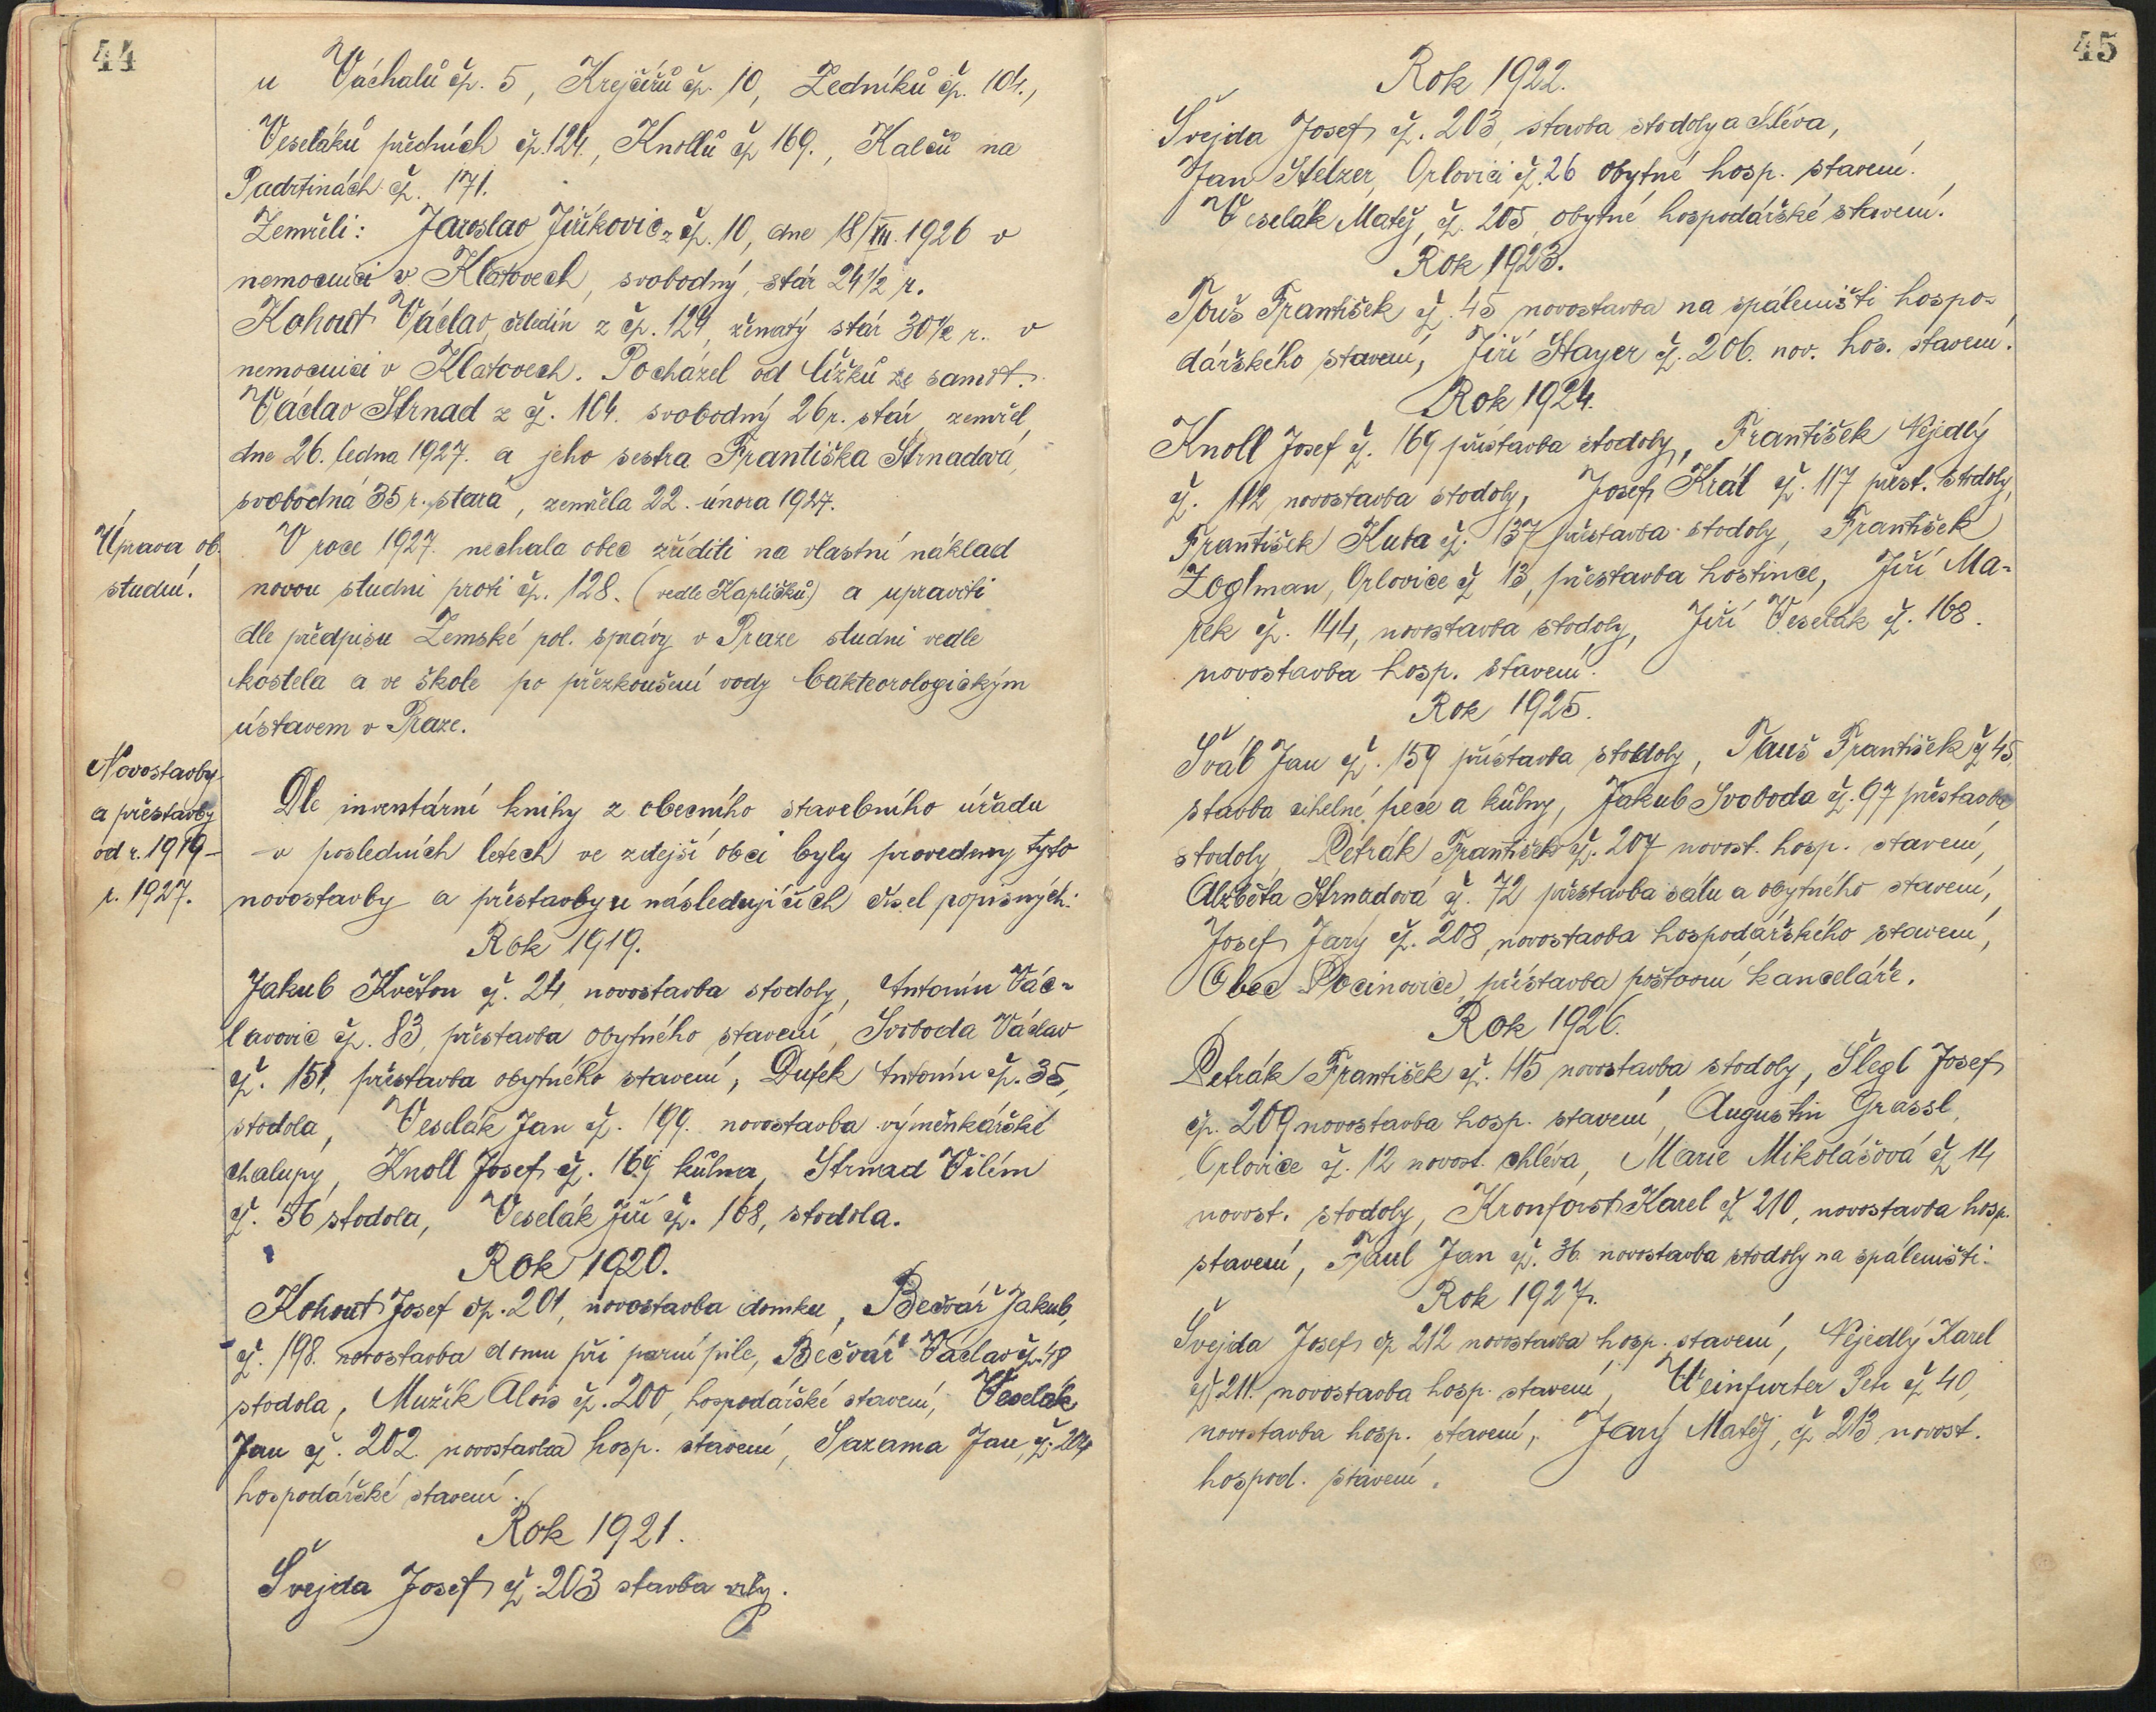 44
u Váchalů čp. 5, Krejčířů čp. 10, Ledníků čp. 104.,
Veseláků předních čp. 124., Knollů čp 169., Kalců na
Padrtinách čp. 171.
Zemřeli: Jaroslav Jiříkovic z čp. 10, dne 18/XII. 1926 v
nemocnici v Klatovech, svobodný, stár 24 1/2 r.
Kohout Václav, čeledín z čp. 124, ženatý stár 30 1/2 r. v
nemocnici v Klatovech. Pocházel od Čížků ze samot.
Václav Strnad z čp. 104. svobodný 26 r. stár, zemřel
dne 26. ledna 1927. a jeho sestra Františka Strnadová,
svobodná 35 r. stará, zemřela 22. února 1927.
Úprava ob.
studní.
V roce 1927. nechala obec zříditi na vlastní náklad
novou studni proti čp. 128. (vedle Kapličků) a upraviti
dle předpisu Zemské pol. správy v Praze studni vedle
kostela a ve škole po přezkoušení vody bakteorologickým
ústavem v Praze.
Novostavby
a přestavby
od r. 1919 –
r. 1927.
Dle inventární knihy z obecního stavebního úřadu
v posledních letech ve zdejší obci byly provedeny tyto
novostavby a přestavby u následujících čísel popisných:
Rok 1919.
Jakub Květon čp. 24, novostavba stodoly, Antonín Vác-
lavovic čp. 83, přestavba obytného stavení, Svoboda Václav
čp. 151, přestavba obytného stavení, Dufek Antonín čp. 35,
stodola, Veselák Jan čp. 199. novostavba výměnkářské
chalupy, Knoll Josef čp. 169 kůlna, Strnad Vilém
čp. 56 stodola, Veselák Jiří čp. 168, stodola.
Rok 1920.
Kohout Josef čp. 201, novostavba domku, Bečvář Jakub,
čp. 198. novostavba domu při parní pile, Bečvář Václav čp. 48
stodola, Mužík Alois čp. 200, hospodářské stavení, Veselák
Jan čp. 202. novostavba hosp. stavení, Sazama Jan, čp. 204
hospodářské stavení.
Rok 1921.
Švejda Josef čp. 203 stavba
45
Rok 1922.
Švejda Josef čp. 203, stavba stodoly a chléva,
Jan Stelzer, Orlovici čp. 26 obytné hosp. stavení.,
Veselák Matěj, čp. 205, obytné hospodářské stavení.
Rok 1923.
Touš František čp. 45 novostavba na spáleništi hospo-
dářského stavení, Jiří Hayer čp. 206. nov. hos. stavení.
Rok 1924.
Knoll Josef čp. 169 přístavba stodoly, František Nejedlý
čp. 112 novostavba stodoly, Josef Král čp. 117 přest. stodoly,
František Kuba čp. 137 přestavba stodoly, František
Zoglman, Orlovice čp 13, přestavba hostince, Jiří Ma-
řek čp. 144, novostavba stodoly, Jiří Veselák čp. 168.
novostavba hosp. stavení.
Rok 1925.
Šváb Jan čp. 159 přístavba stodoly, Tauš František čp 45,
stavba cihelné pece a kůlny, Jakub Svoboda čp. 97 přestavba
stodoly, Petrák František čp. 207 novost. hosp. stavení,
Alžběta Strnadová čp. 72 přestavba sálu a obytného stavení,
Josef Jarý čp. 208, novostavba hospodářského stavení,
Obec Pocinovice, přístavba poštovní kanceláře.
Rok 1926.
Petrák František čp. 115 novostavba stodoly, Šlegl Josef
čp. 209 novostavba hosp. stavení, Augustin Grassl,
Orlovice čp. 12 novost. chléva, Marie Mikolášová čp 14
novost. stodoly, Kronforst Karel čp 210, novostavba hosp.
stavení, Paul Jan čp. 36 novostavba stodoly na spáleništi.
Rok 1927.
Švejda Josef čp 212 novostavba hosp. stavení, Nejedlý Karel
čp 211. novostavba hosp. stavení, Weinfurter Petr čp 40,
novostavba hosp. stavení, Jarý Matěj, čp 213 novost.
hospod. stavení.